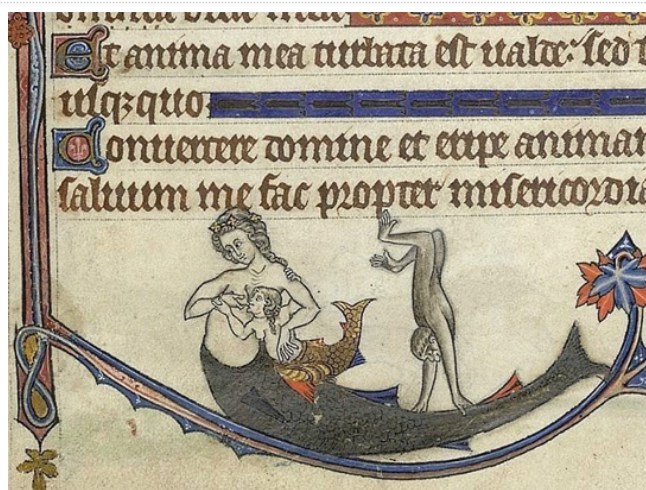 Et anima mea turbata est ualde: sed
usqꝫquo.
Conuertere domine et eripe anima
saluum me fac propter misericordia